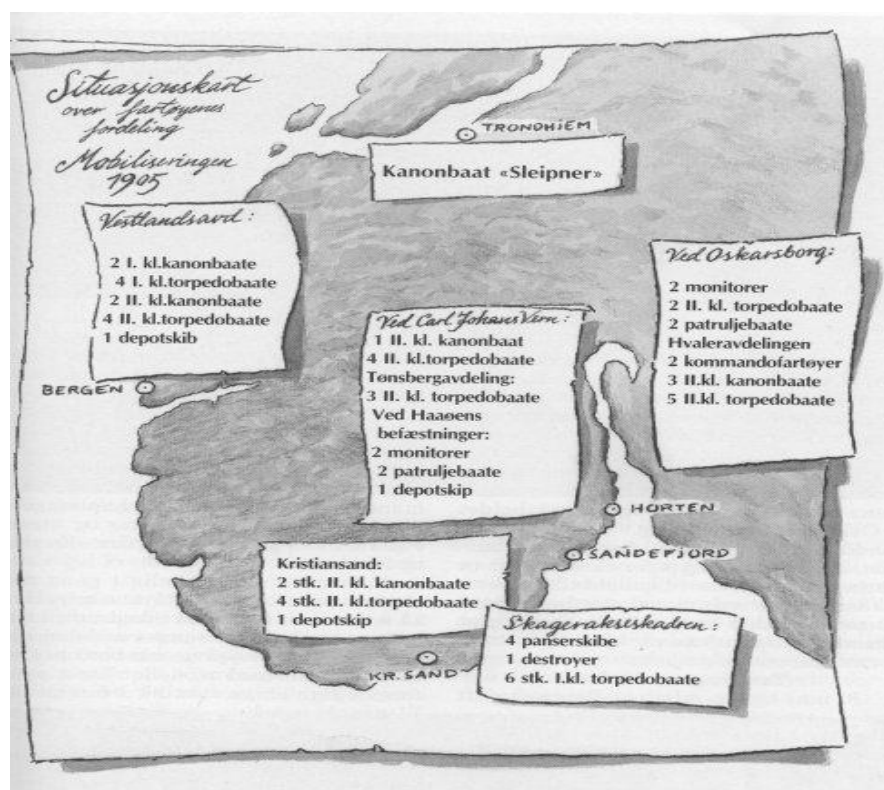 Situasjonskart
over fartøyenes
fordeling
Mobiliseringen
1905
TRONDHIEM
Kanonbaat «Sleipner»
Vestlandsavd:
2 I. kl.kanonbaate
4 I. kl.torpedobaate
2 II. kl.kanonbaate
4 II. kl.torpedobaate
1 depotskib
BERGEN
Ved Carl Johans Vern:
1 II. kl. kanonbaat
4 II. kl.torpedobaate
Tønsbergavdeling:
3 II. kl. torpedobaate
Ved Haaøens
befæstninger:
2 monitorer
2 patruljebaate
1 depotskip
Ved Oskarsborg:
2 monitorer
2 II. kl. torpedobaate
2 patruljebaate
Hvaleravdelingen
2 kommandofartøyer
3 II.kl. kanonbaate
5 II.kl. torpedobaate
HORTEN
SANDEFJORD
Kristiansand:
2 stk. II. kl. kanonbaate
4 stk. II. kl.torpedobaate
1 depotskip
KR. SAND
Skagerakseskadren:
4 panserskibe
1 destroyer
6 stk. I.kl. torpedobaate